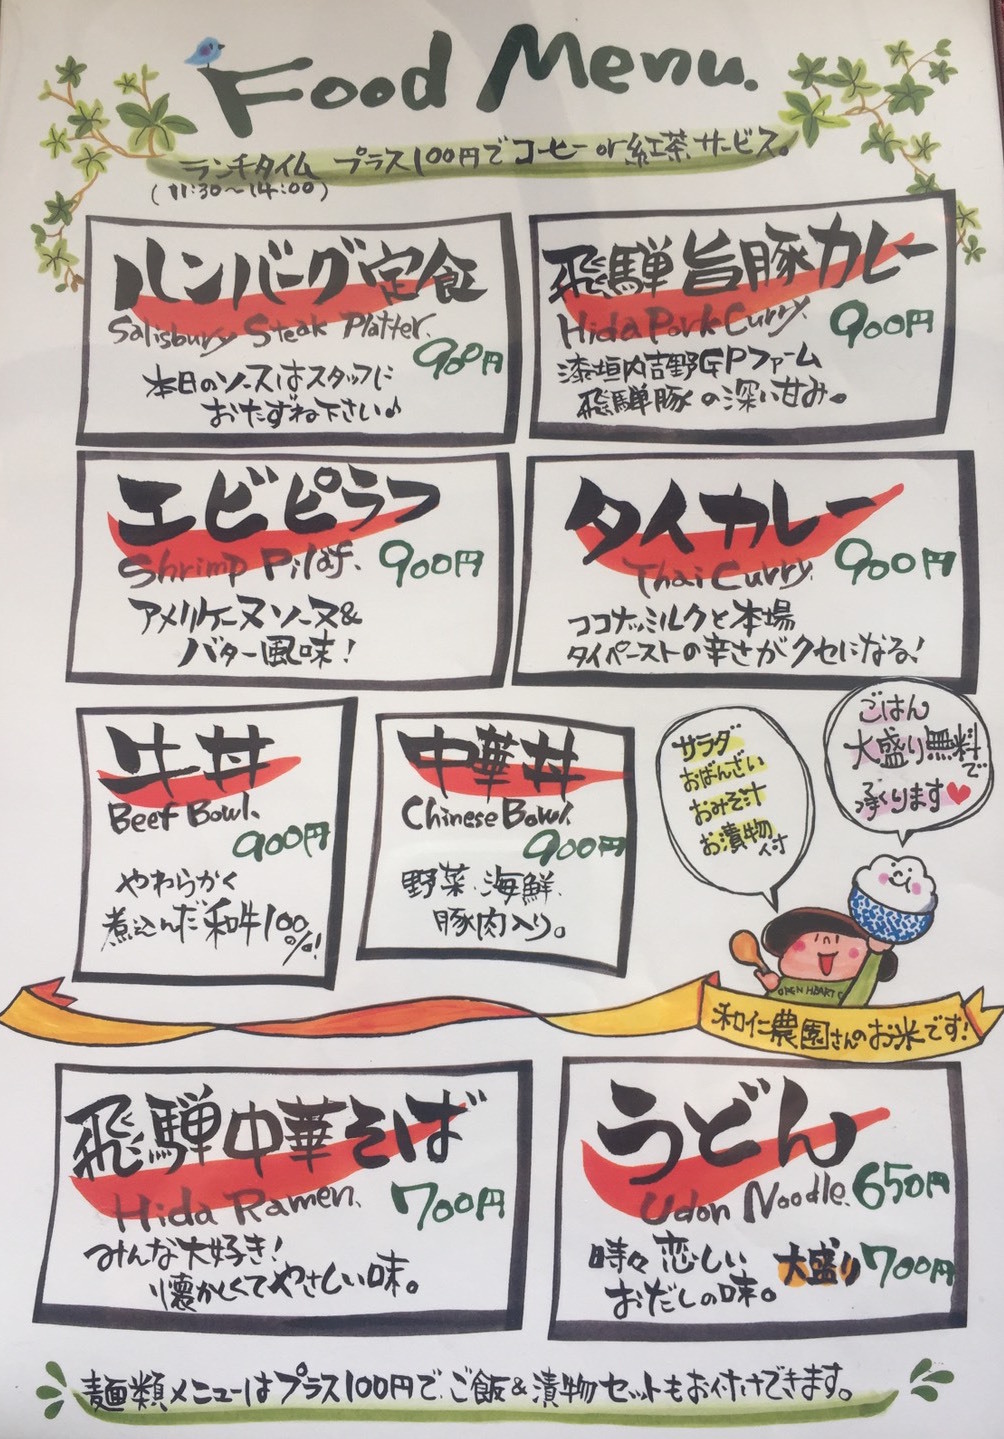 Food Menu.
ランチタイム プラス100円でコーヒー or 紅茶サービス。
(11:30〜14:00)
ハンバーグ定食
Salisbury Steak Platter.
900円
本日のソースはスタッフに
おたずね下さい♪
飛騨旨豚カレー
Hida Pork Curry.
900円
漆垣内吉野GPファーム
飛騨豚の深い甘み。
エビピラフ
Shrimp Pilaf.
900円
アメリケーヌソース&
バター風味!
タイカレー
Thai Curry.
900円
ココナッツミルクと本場
タイペーストの辛さがクセになる!
牛丼
Beef Bowl.
900円
やわらかく
煮込んだ和牛100%!
中華丼
Chinese Bowl.
900円
野菜、海鮮、
豚肉入り。
サラダ
おばんざい
おみそ汁
お漬物付
ごはん
大盛り無料で
承ります♥
OPEN HEART
和仁農園さんのお米です!
飛騨中華そば
Hida Ramen.
700円
みんな大好き!
懐かしくてやさしい味。
うどん
Udon Noodle.
650円
時々恋しい
おだしの味。
大盛り700円
麺類メニューはプラス100円で、ご飯&漬物セットもお付けできます。